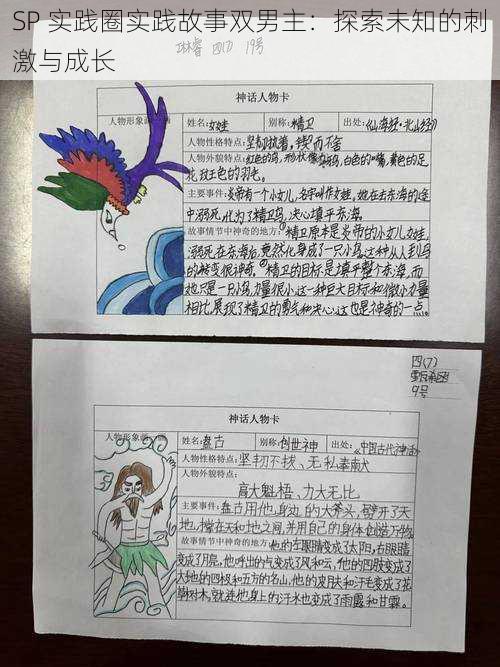 SP 实践圈实践故事双男主：探索未知的刺
激与成长
四(7) 19号
神话人物卡
人物形象画一画
姓名:女娃 别称:精卫 出处:《山海经·北山经》
人物性格特点:坚韧执着,锲而不舍
人物外貌特点:红色的鸟,形状像乌鸦,白色的嘴,黄色的足
花纹色的羽毛。
主要事件:炎帝有一个小女儿,名字叫作女娃,她在去东海的途
中溺死,化为了精卫鸟,决心填平东海。
故事情节中神奇的地方:精卫原本是炎帝的小女儿女娃,
溺死在东海后,竟然化身成了一只小鸟,这种从人到鸟
的转变很神奇。精卫的目标是填平整个东海,而
她只是一只小鸟,力量很小,这一种巨大目标和微小力量
相比,展现了精卫的勇气和决心,这也是神奇的一点
四(7)
9号
神话人物卡
人物形象画一画
姓名:盘古 别称:创世神 出处:《中国古代神话》
人物性格特点:坚韧不拔、无私奉献
人物外貌特点:
高大魁梧、力大无比
主要事件:盘古用他身边的大斧头,劈开了天
地,撑在天和地之间,并用自己的身体创造万物
故事情节中神奇的地方:他的左眼睛变成了太阳,右眼睛
变成了月亮,他呼出的气变成了风和云,他的四肢变成了
大地的四极和五方的名山,他的皮肤和汗毛变成了花
草树木,就连他身上的汗水也变成了雨露和甘霖。